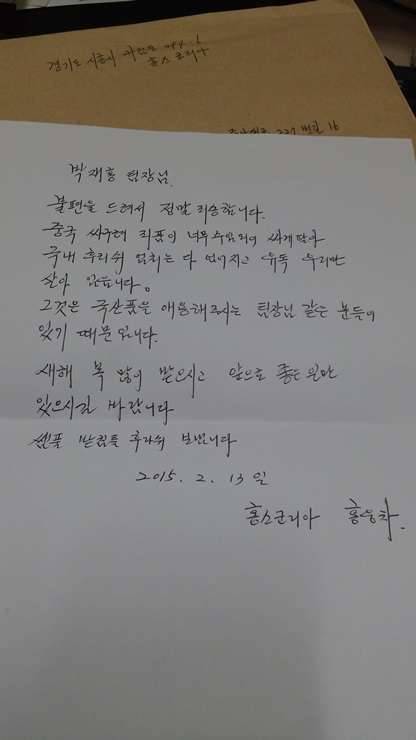 경기도 시흥시
홈스코리아
227번길 16
박재홍 팀장님.
불편을 드려서 정말 죄송합니다.
중국 싸구려 제품이 너무 수입되어 싸게 팔아
국내 후라쉬 업체는 다 없어지고 유독 우리만
살아 있습니다.
그것은 국산품을 애용해주시는 팀장님 같은 분들이
있기 때문입니다.
새해 복 많이 받으시고 앞으로 좋은 일만
있으시길 바랍니다
샘플 받침틀 후라쉬 보냅니다
2015. 2. 13일
홈스코리아 홍승차.